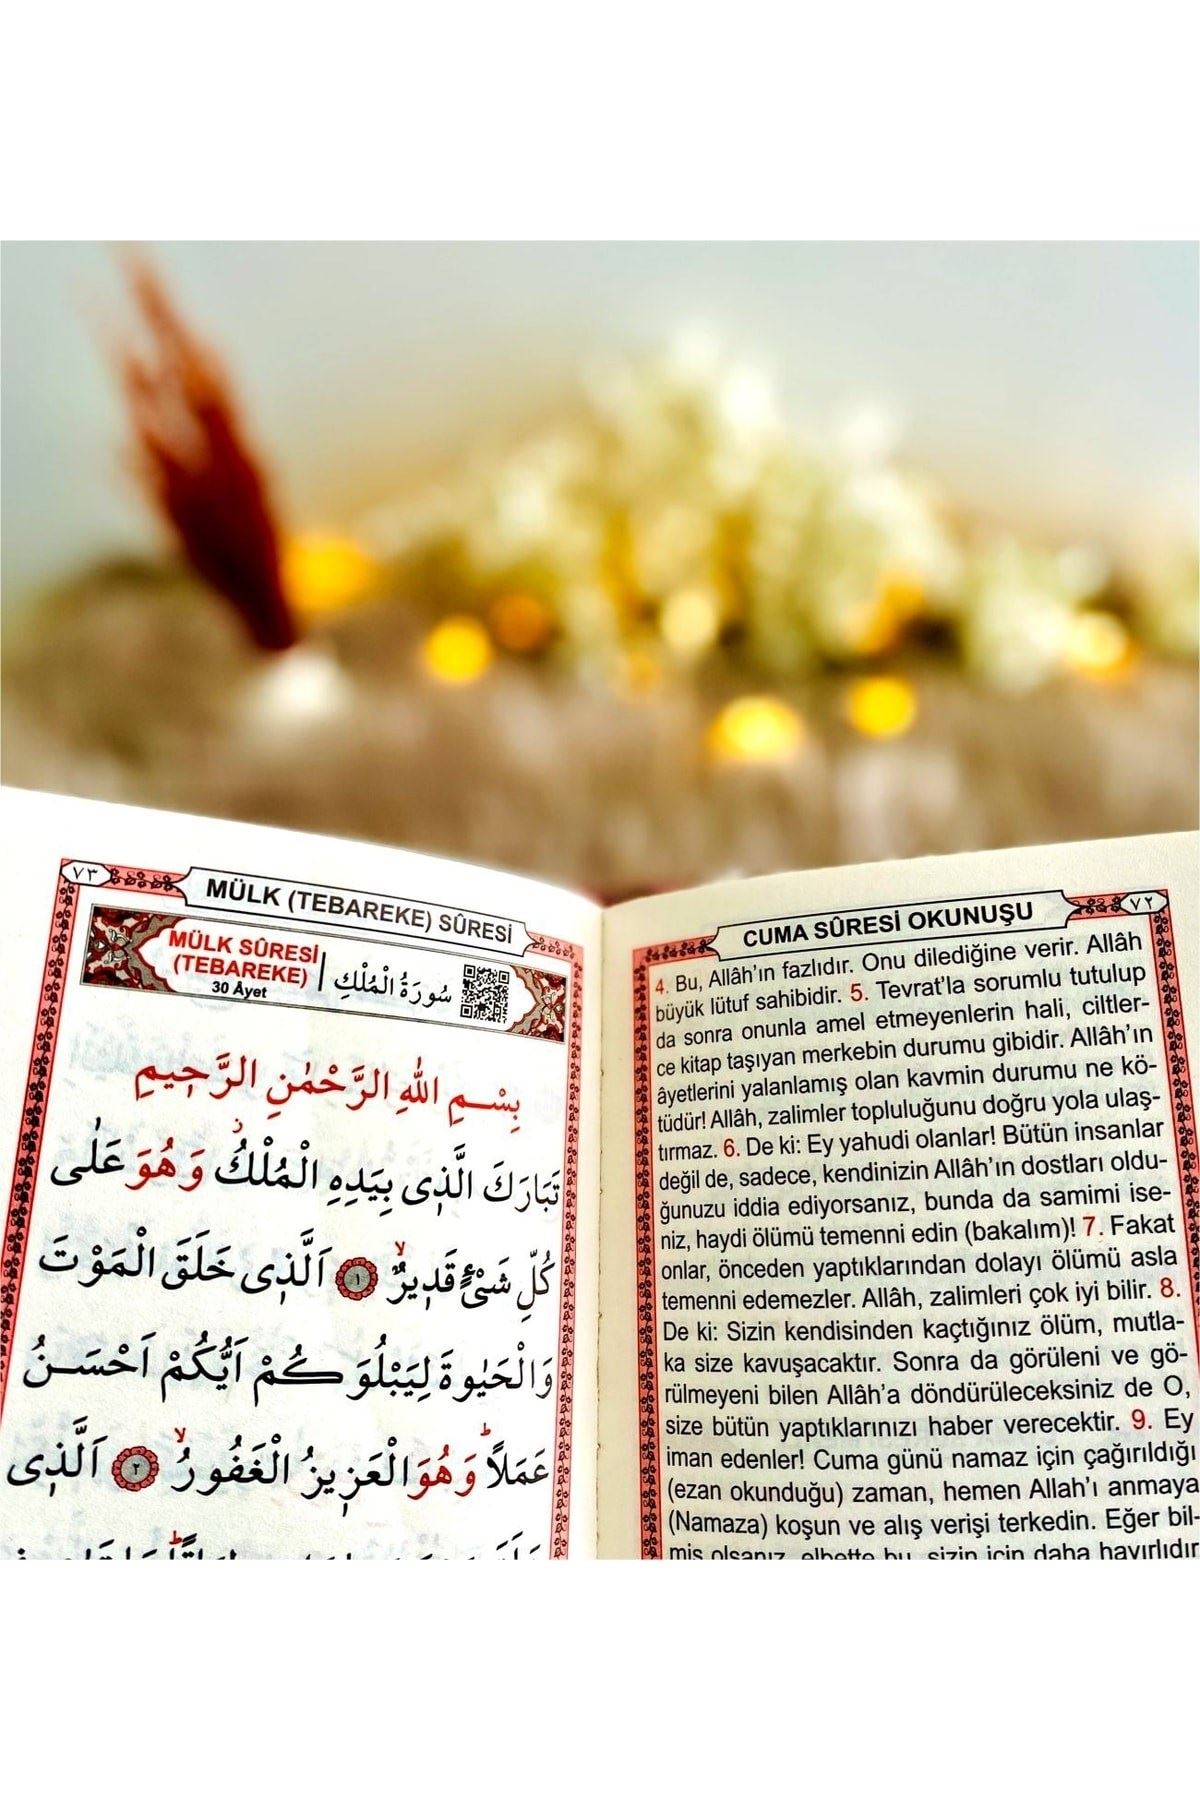 ٧٣
MÜLK (TEBAREKE) SÛRESİ
MÜLK SÛRESİ
(TEBAREKE)
30 Âyet
سُورَةُ الْمُلْكِ
بِسْــمِ اللهِ الرَّحْمٰنِ الرَّح۪يمِ
تَبَارَكَ الَّذ۪ى بِيَدِهِ الْمُلْكُۘ وَهُوَ عَلٰى
كُلِّ شَىْءٍ قَد۪يرٌۙ ١ اَلَّذ۪ى خَلَقَ الْمَوْتَ
وَالْحَيٰوةَ لِيَبْلُوَكُمْ اَيُّكُمْ اَحْسَـنُ
عَمَلًاۜ وَهُوَ الْعَز۪يزُ الْغَفُورُۙ ٢ اَلَّذ۪ى
٧٢
CUMA SÛRESİ OKUNUŞU
4. Bu, Allâh’ın fazlıdır. Onu dilediğine verir. Allâh
büyük lütuf sahibidir. 5. Tevrat’la sorumlu tutulup
da sonra onunla amel etmeyenlerin hali, ciltler-
ce kitap taşıyan merkebin durumu gibidir. Allâh’ın
âyetlerini yalanlamış olan kavmin durumu ne kö-
tüdür! Allâh, zalimler topluluğunu doğru yola ulaş-
tırmaz. 6. De ki: Ey yahudi olanlar! Bütün insanlar
değil de, sadece, kendinizin Allâh’ın dostları oldu-
ğunuzu iddia ediyorsanız, bunda da samimi ise-
niz, haydi ölümü temenni edin (bakalım)! 7. Fakat
onlar, önceden yaptıklarından dolayı ölümü asla
temenni edemezler. Allâh, zalimleri çok iyi bilir. 8.
De ki: Sizin kendisinden kaçtığınız ölüm, mutla-
ka size kavuşacaktır. Sonra da görüleni ve gö-
rülmeyeni bilen Allâh’a döndürüleceksiniz de O,
size bütün yaptıklarınızı haber verecektir. 9. Ey
iman edenler! Cuma günü namaz için çağırıldığı
(ezan okunduğu) zaman, hemen Allah’ı anmaya
(Namaza) koşun ve alış verişi terkedin. Eğer bil-
miş olsanız, elbette bu, sizin için daha hayırlıdır